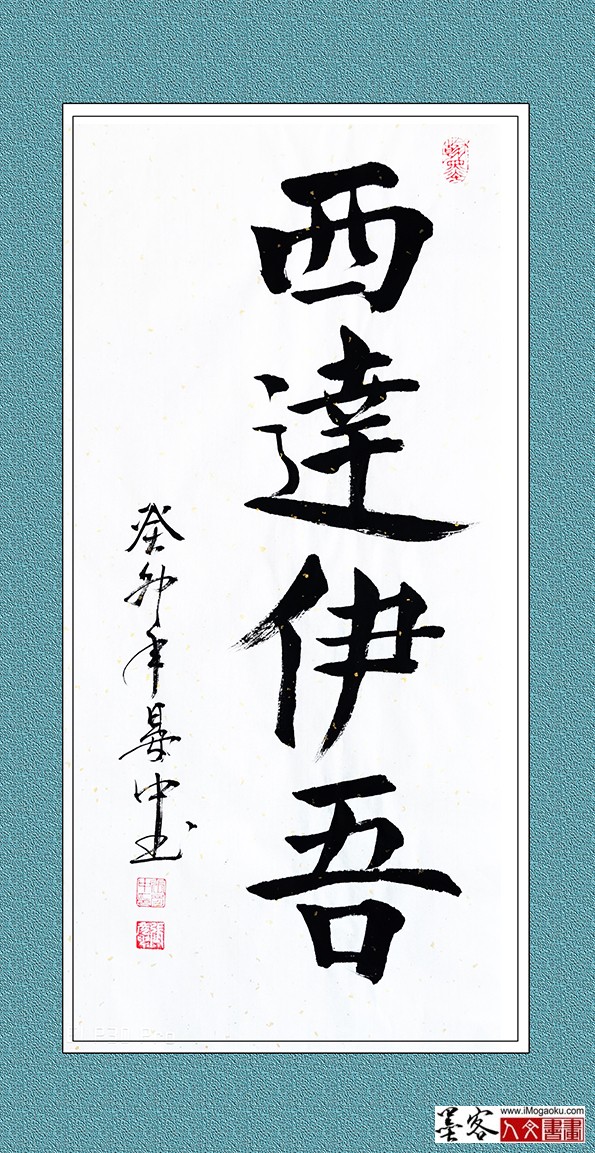 西達伊吾
癸卯年晏中书
墨客
www.iMogaoku.com
人文書畫